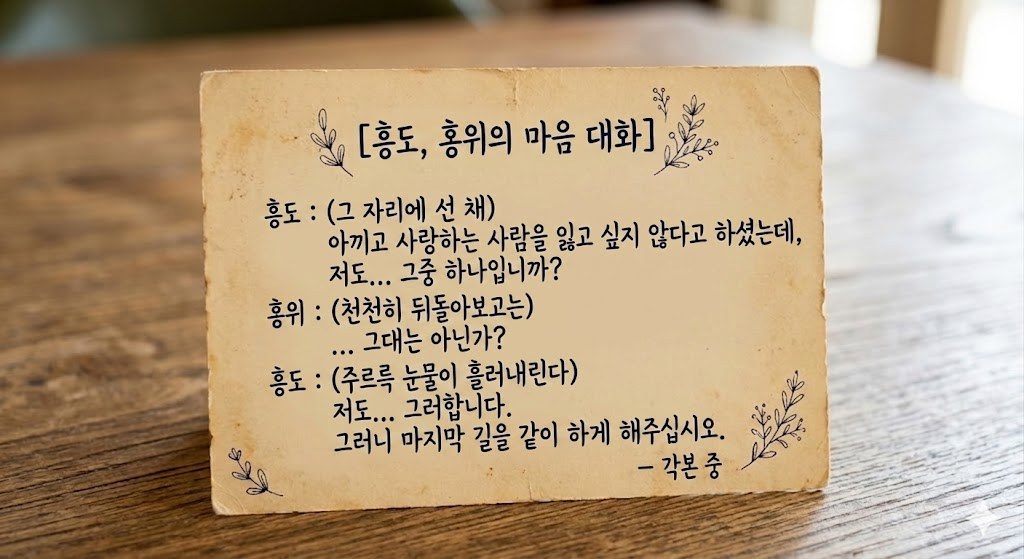 [흥도, 홍위의 마음 대화]
흥도 : (그 자리에 선 채)
아끼고 사랑하는 사람을 잃고 싶지 않다고 하셨는데,
저도... 그중 하나입니까?
홍위 : (천천히 뒤돌아보고는)
... 그대는 아닌가?
흥도 : (주르륵 눈물이 흘러내린다)
저도... 그러합니다.
그러니 마지막 길을 같이 하게 해주십시오.
– 각본 중